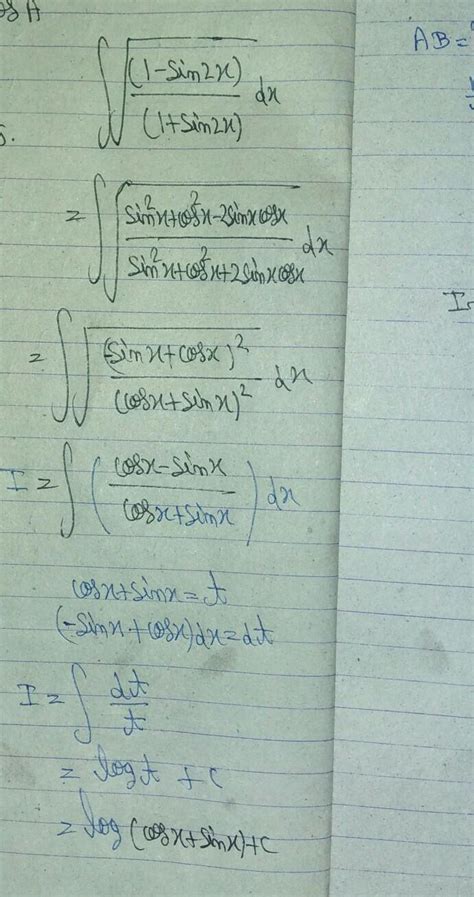 A
∫√((1-Sin2x)/(1+Sin2x)) dx
AB=
5.
= ∫√((sin²x+cos²x-2sinxcosx)/(Sin²x+cos²x+2sinxcosx)) dx
I
= ∫√((Sinx+cosx)²/(cosx+sinx)²) dx
I = ∫((cosx-sinx)/(cosx+sinx)) dx
cosx+sinx=t
(-Sinx+cosx)dx=dt
I = ∫ dt/t
= logt + c
= log(cosx+sinx)+c